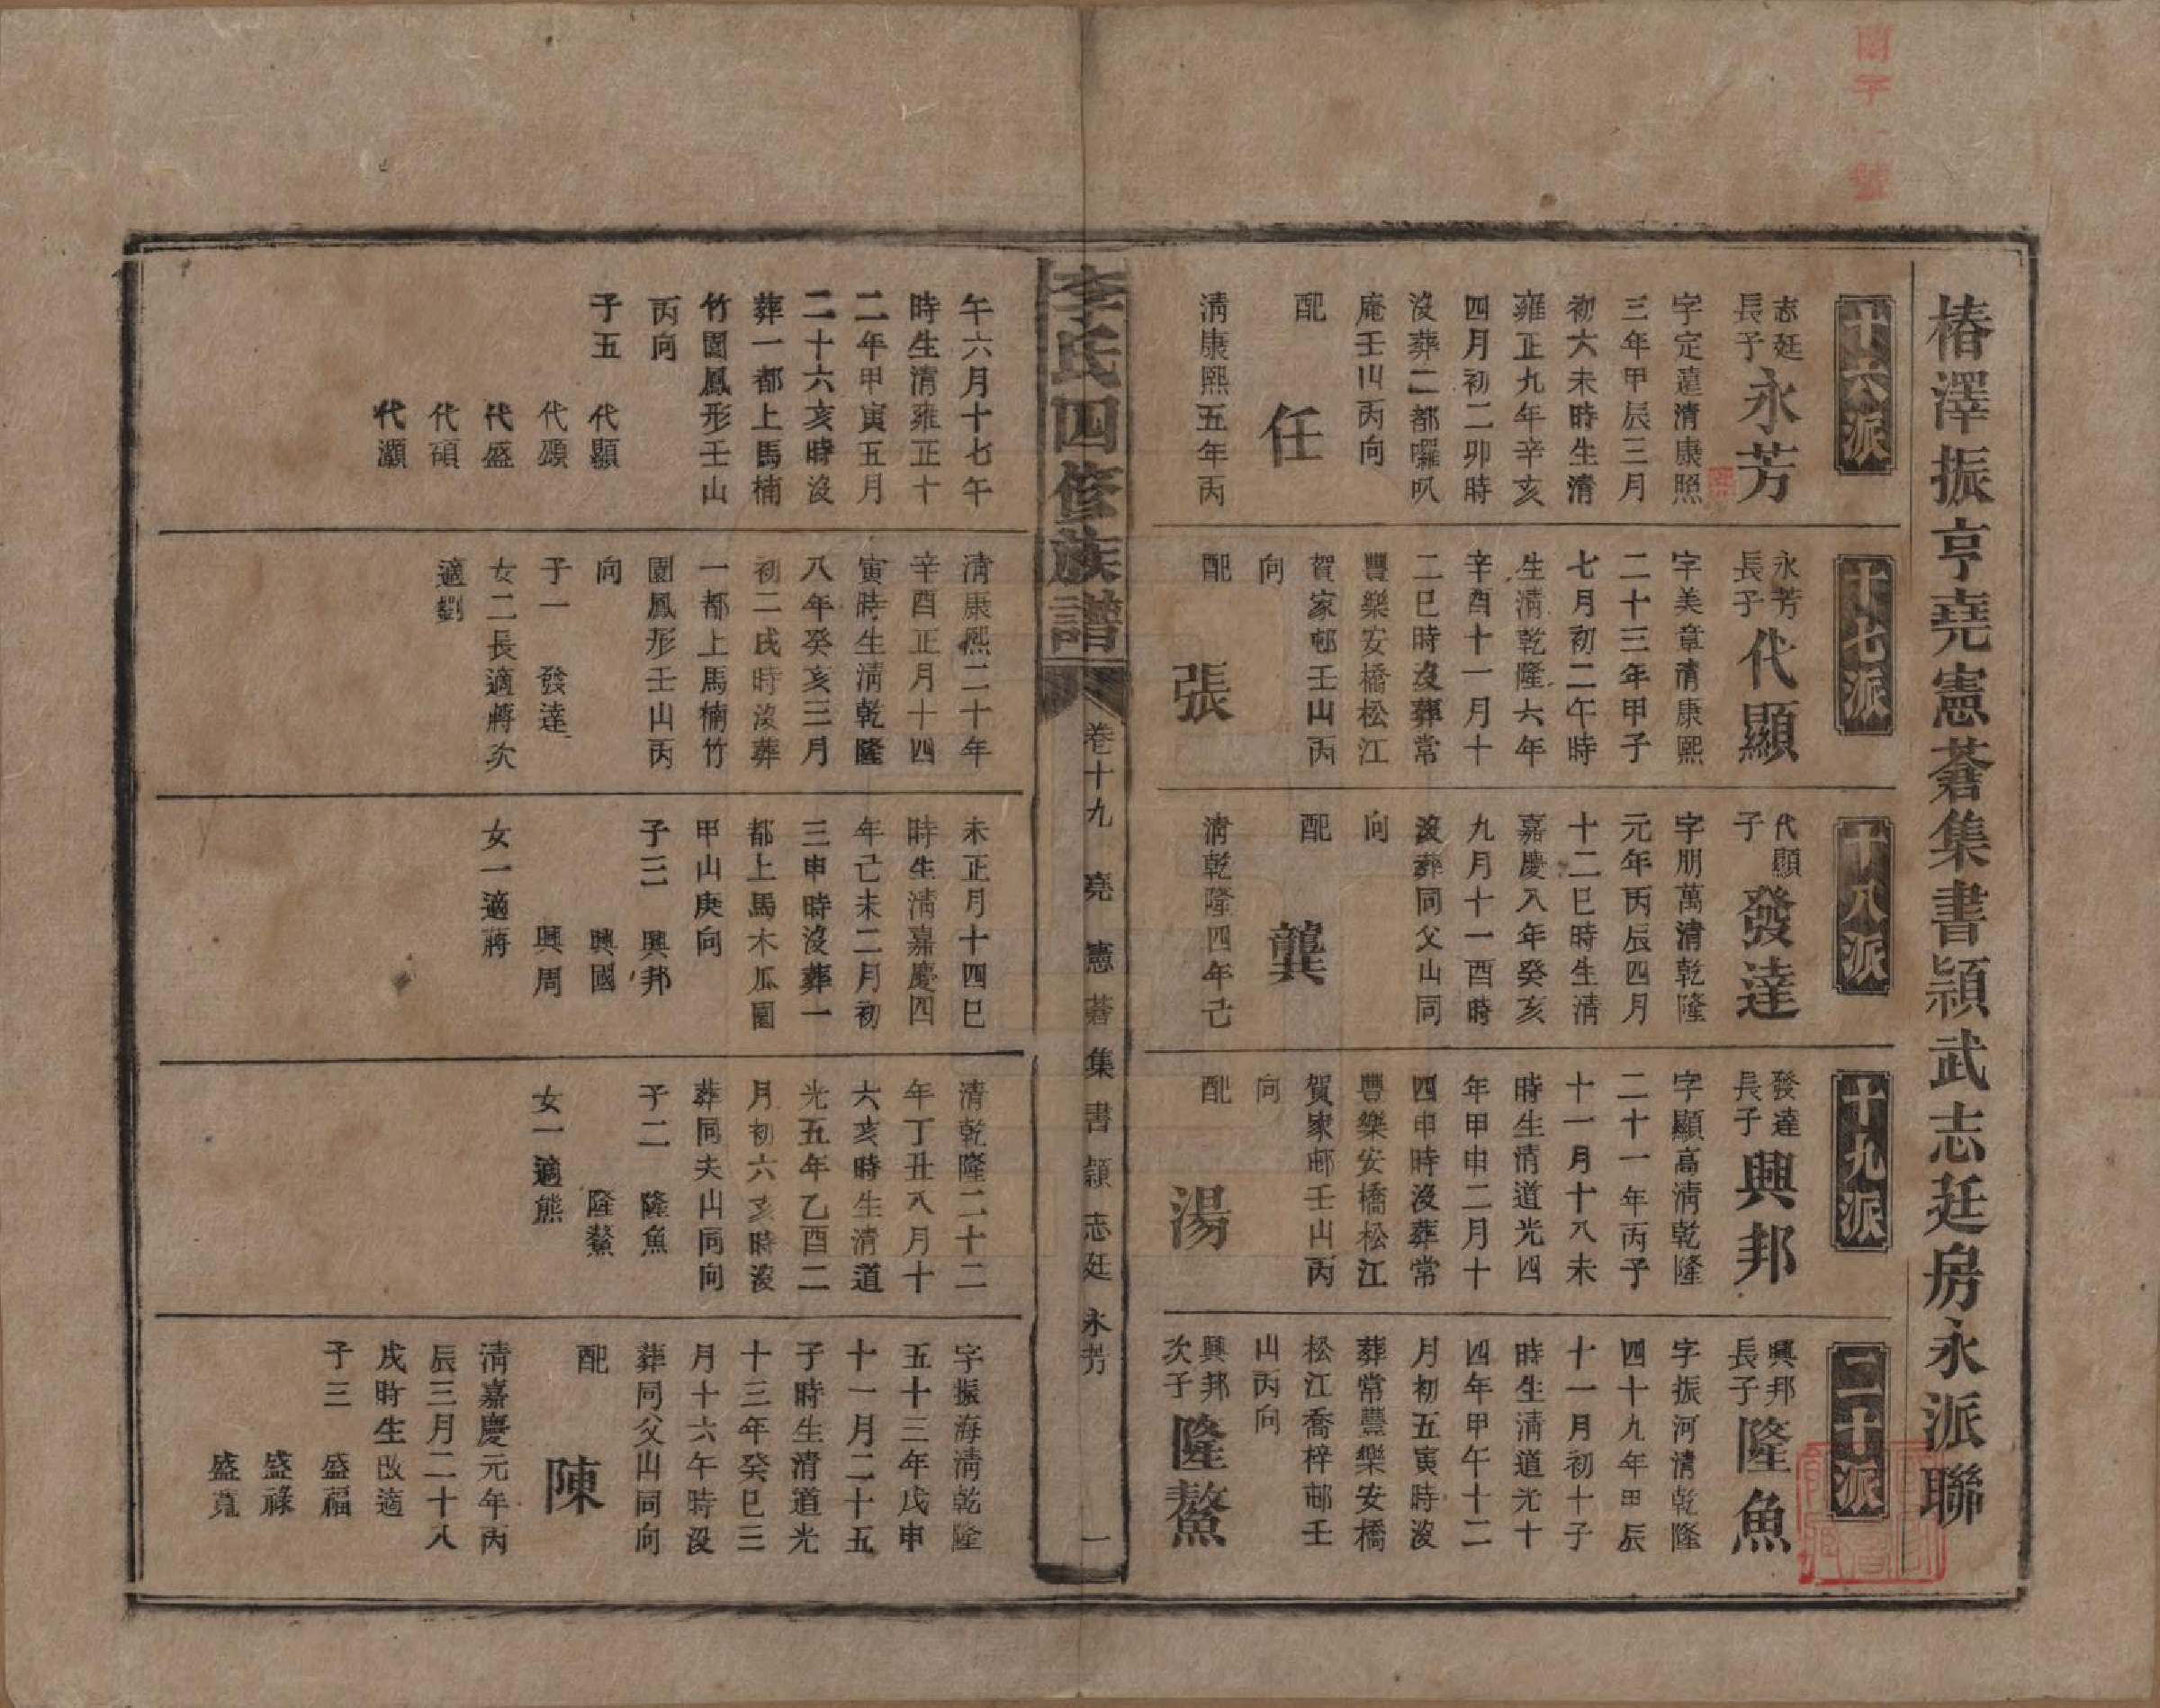 椿澤振亨堯憲蒼集書頴武志廷房永派聯
十六派
志廷
長子
永芳
字定遠清康照
熙
三年甲辰三月
初六未時生清
雍正九年辛亥
四月初二卯時
沒葬二都囉叺
庵壬山丙向
配
任
淸康熙五年丙
十七派
永芳
長子
代顯
字美章清康熙
二十三年甲子
七月初二午時
生淸乾隆六年
辛酉十一月十
二巳時沒葬常
豐樂安橋松江
賀家邨壬山丙
向
配
張
十八派
代顯
子
發達
字朋萬清乾隆
元年丙辰四月
十二巳時生淸
嘉慶八年癸亥
九月十一酉時
沒葬同父山同
向
配
龔
淸乾隆四年己
十九派
發達
長子
興邦
字顯高淸乾隆
二十一年丙子
十一月十八未
時生淸道光四
年甲申二月十
四申時沒葬常
豐樂安橋松江
賀家邨壬山丙
向
配
湯
二十派
興邦
長子
隆魚
字振河清乾隆
四十九年甲辰
十一月初十子
時生淸道光十
四年甲午十二
月初五寅時沒
葬常豐樂安橋
松江喬梓邨壬
山丙向
興邦
次子
隆鰲
李氏四修族譜
卷十九
堯憲蒼集書頴志廷永芳
一
午六月十七午
時生清雍正十
二年甲寅五月
二十六亥時沒
葬一都上馬楠
竹園鳳形壬山
丙向
子五
代顯
代頲
代盛
代碩
代灝
淸康熙二十年
辛酉正月十四
寅時生淸乾隆
八年癸亥三月
初二戌時沒葬
一都上馬楠竹
園鳳形壬山丙
向
子一
發達
女二長適蔣次
適劉
未正月十四巳
時生淸嘉慶四
年己未二月初
三申時沒葬一
都上馬木瓜園
甲山庚向
子三
興邦
興國
興周
女一適蔣
淸乾隆二十二
年丁丑八月十
六亥時生淸道
光五年乙酉二
月初六亥時沒
葬同夫山同向
子二
隆魚
隆鰲
女一適熊
字振海淸乾隆
五十三年戊申
十一月二十五
子時生清道光
十三年癸巳三
月十六午時沒
葬同父山同向
配
陳
淸嘉慶元年丙
辰三月二十八
戌時生改適
子三
盛福
盛祿
盛蒄